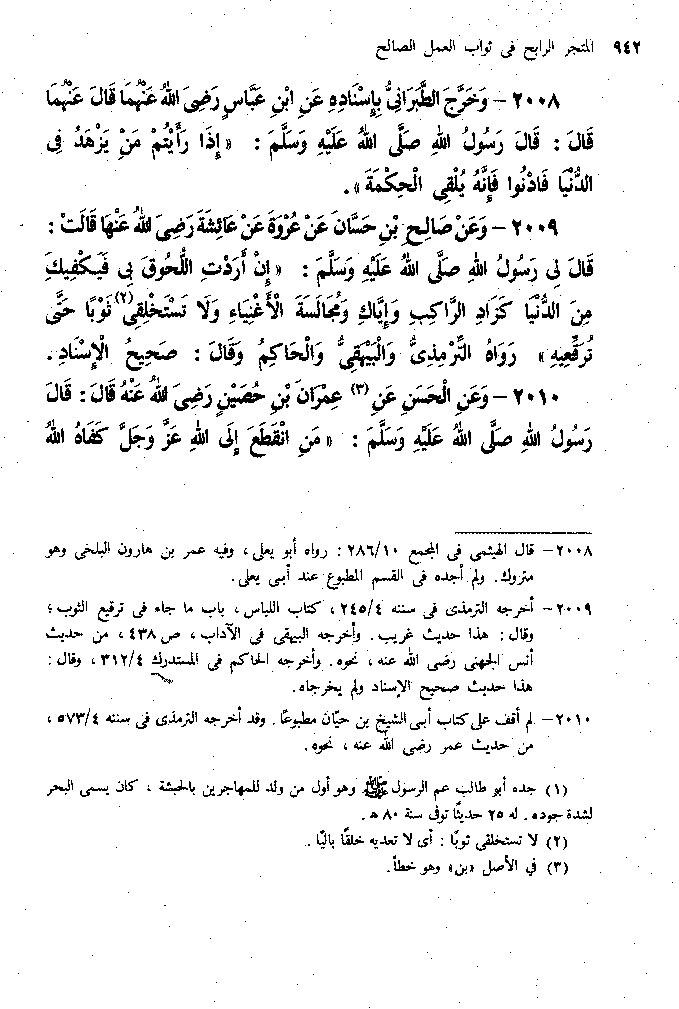 ٩٤٢ المتجر الرابح فى ثواب العمل الصالح
٢٠٠٨ – وَخَرَّجَ الطَّبَرَانِىُّ بِإِسْنَادِهِ عَنِ ابْنِ عَبَّاسٍ رَضِىَ اللهُ عَنْهُمَا قَالَ عَنْهُمَا
قَالَ : قَالَ رَسُولُ اللهِ صَلَّى اللهُ عَلَيْهِ وَسَلَّمَ : « إِذَا رَأَيْتُمْ مَنْ يَزْهَدُ فِى
الدُّنْيَا فَادْنُوا فَإِنَّهُ يُلْقِى الْحِكْمَةَ » .
٢٠٠٩ – وَعَنْ صَالِحِ بْنِ حَسَّانَ عَنْ عُرْوَةَ عَنْ عَائِشَةَ رَضِىَ اللهُ عَنْهَا قَالَتْ :
قَالَ لِى رَسُولُ اللهِ صَلَّى اللهُ عَلَيْهِ وَسَلَّمَ : « إِنْ أَرَدْتِ اللُّحُوقَ بِى فَيَكْفِيكِ
مِنَ الدُّنْيَا كَزَادِ الرَّاكِبِ وَإِيَّاكِ وَمُجَالَسَةَ الْأَغْنِيَاءِ وَلَا تَسْتَخْلِقِى(٢) ثَوْبًا حَتَّى
تُرَقِّعِيهِ » رَوَاهُ التِّرْمِذِىُّ وَالْبَيْهَقِىُّ وَالْحَاكِمُ وَقَالَ : صَحِيحُ الْإِسْنَادِ .
٢٠١٠ – وَعَنِ الْحَسَنِ عَنِ (٣) عِمْرَانَ بْنِ حُصَيْنٍ رَضِىَ اللهُ عَنْهُ قَالَ : قَالَ
رَسُولُ اللهِ صَلَّى اللهُ عَلَيْهِ وَسَلَّمَ : « مَنِ انْقَطَعَ إِلَى اللهِ عَزَّ وَجَلَّ كَفَاهُ اللهُ
٢٠٠٨ – قال الهيثمى فى المجمع ٢٨٦/١٠ : رواه أبو يعلى ، وفيه عمر بن هارون البلخى وهو
متروك . ولم أجده فى القسم المطبوع عند أبى يعلى .
٢٠٠٩ – أخرجه الترمذى فى سننه ٢٤٥/٤ ، كتاب اللباس ، باب ما جاء فى ترقيع الثوب ؛
وقال : هذا حديث غريب . وأخرجه البيهقى فى الآداب ، ص ٤٣٨ ، من حديث
أنس الجهنى رضى الله عنه ، نحوه . وأخرجه الحاكم فى المستدرك ٣١٢/٤ ، وقال :
هذا حديث صحيح الإسناد ولم يخرجاه .
٢٠١٠ – لم أقف على كتاب أبى الشيخ بن حيان مطبوعًا . وقد أخرجه الترمذى فى سننه ٥٧٣/٤ ،
من حديث عمر رضى الله عنه ، نحوه .
(١) جده أبو طالب عم الرسول ﷺ وهو أول من ولد للمهاجرين بالحبشة ، كان يسمى البحر
لشدة جوده . له ٢٥ حديثًا توفى سنة ٨٠ هـ .
(٢) لا تستخلقى ثوبًا : أى لا تعديه خلقًا باليًا .
(٣) فى الأصل «بن» وهو خطأ .